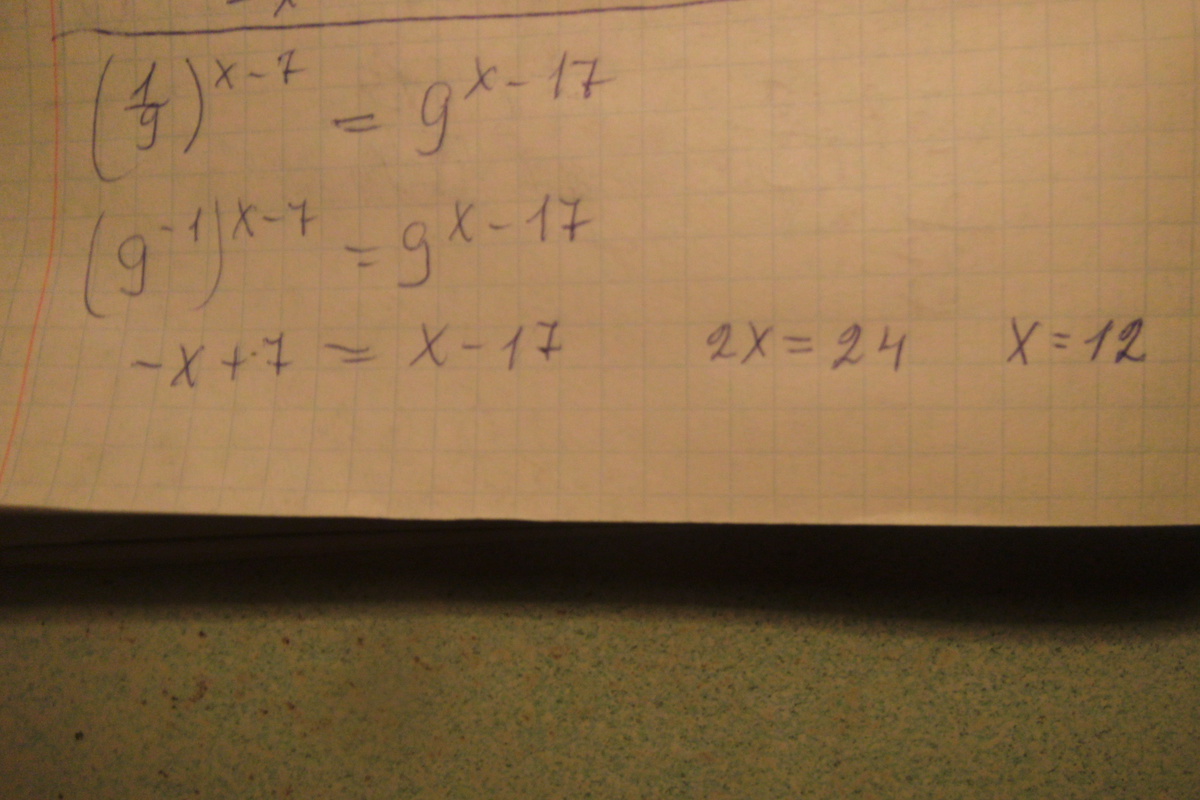 - x
(1/9)^(x-7) = 9^(x-17)
(9^(-1))^(x-7) = 9^(x-17)
-x+7 = x-17 2x=24 x=12